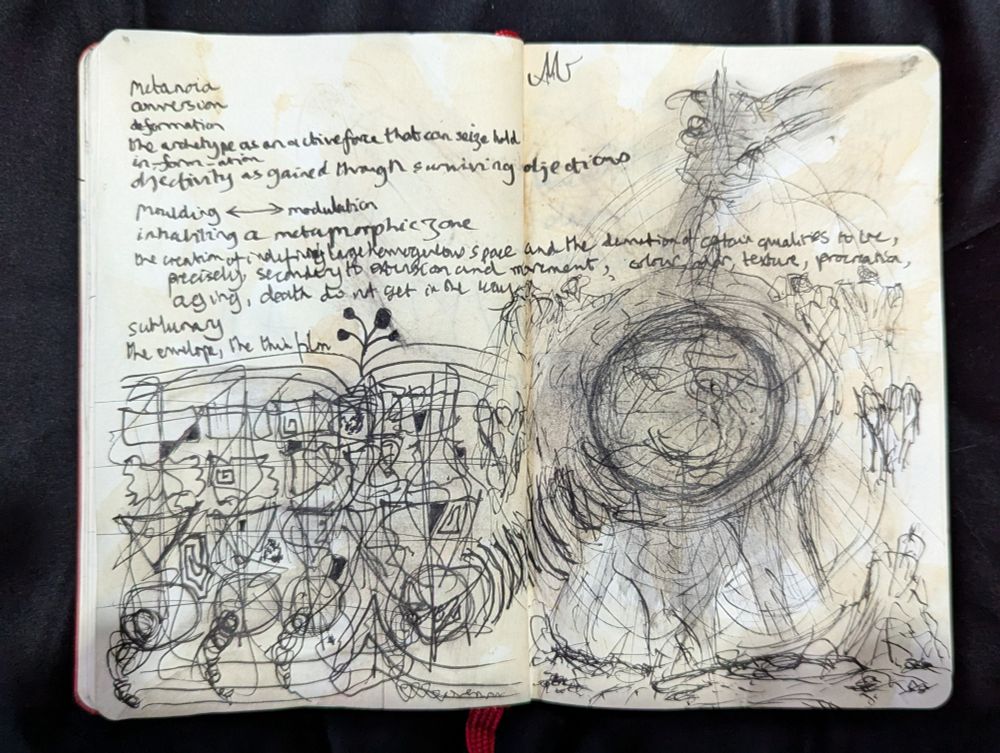 Metanoia
conversion
deformation
the archetype as an active force that can seize hold
in-form-ation
objectivity as gained through surviving objections
moulding ⟷ modulation
inhabiting a metamorphic zone
the creation of space and the of certain qualities to be,
precisely, secondary to extension and movement, colour, odor, texture, procreation,
aging, death do not get in the way
sublunary
the envelope, the thin film